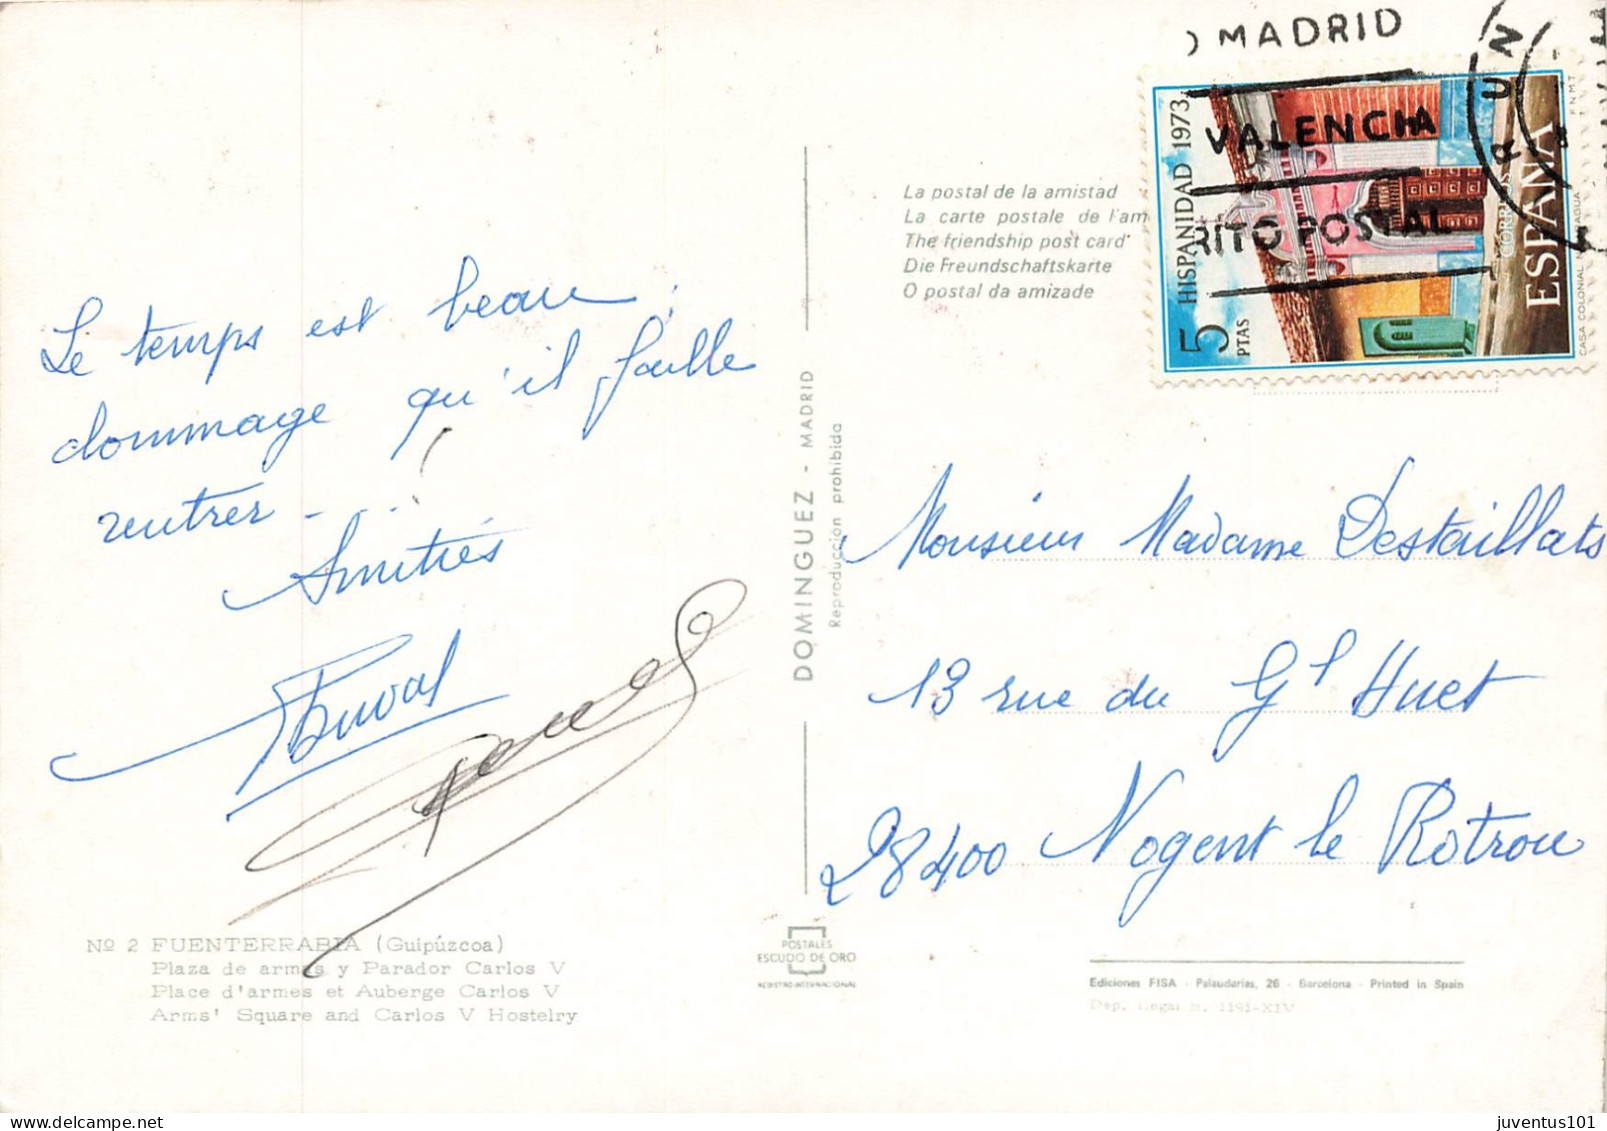 MADRID
VALENCIA
RITO POSTAL
HISPANIDAD 1973
5 PTAS
CORREOS
ESPAÑA
CASA COLONIAL. NICARAGUA
F.N.M.T
La postal de la amistad
La carte postale de l'am
The friendship post card
Die Freundschaftskarte
O postal da amizade
Le temps est beau,
dommage qu'il faille
rentrer - . . !
Amitiés
Duval
DOMINGUEZ - MADRID
Reproducción prohibida
Monsieur Madame Destaillats
13 rue du Gl Huet
28400 Nogent le Rotrou
Nº 2 FUENTERRABIA (Guipúzcoa)
Plaza de armas y Parador Carlos V
Place d'armes et Auberge Carlos V
Arms' Square and Carlos V Hostelry
POSTALES
ESCUDO DE ORO
REGISTRO INTERNACIONAL
Ediciones FISA - Palaudarias, 26 - Barcelona - Printed in Spain
Dep. Legal B. 1191-XIV
juventus101